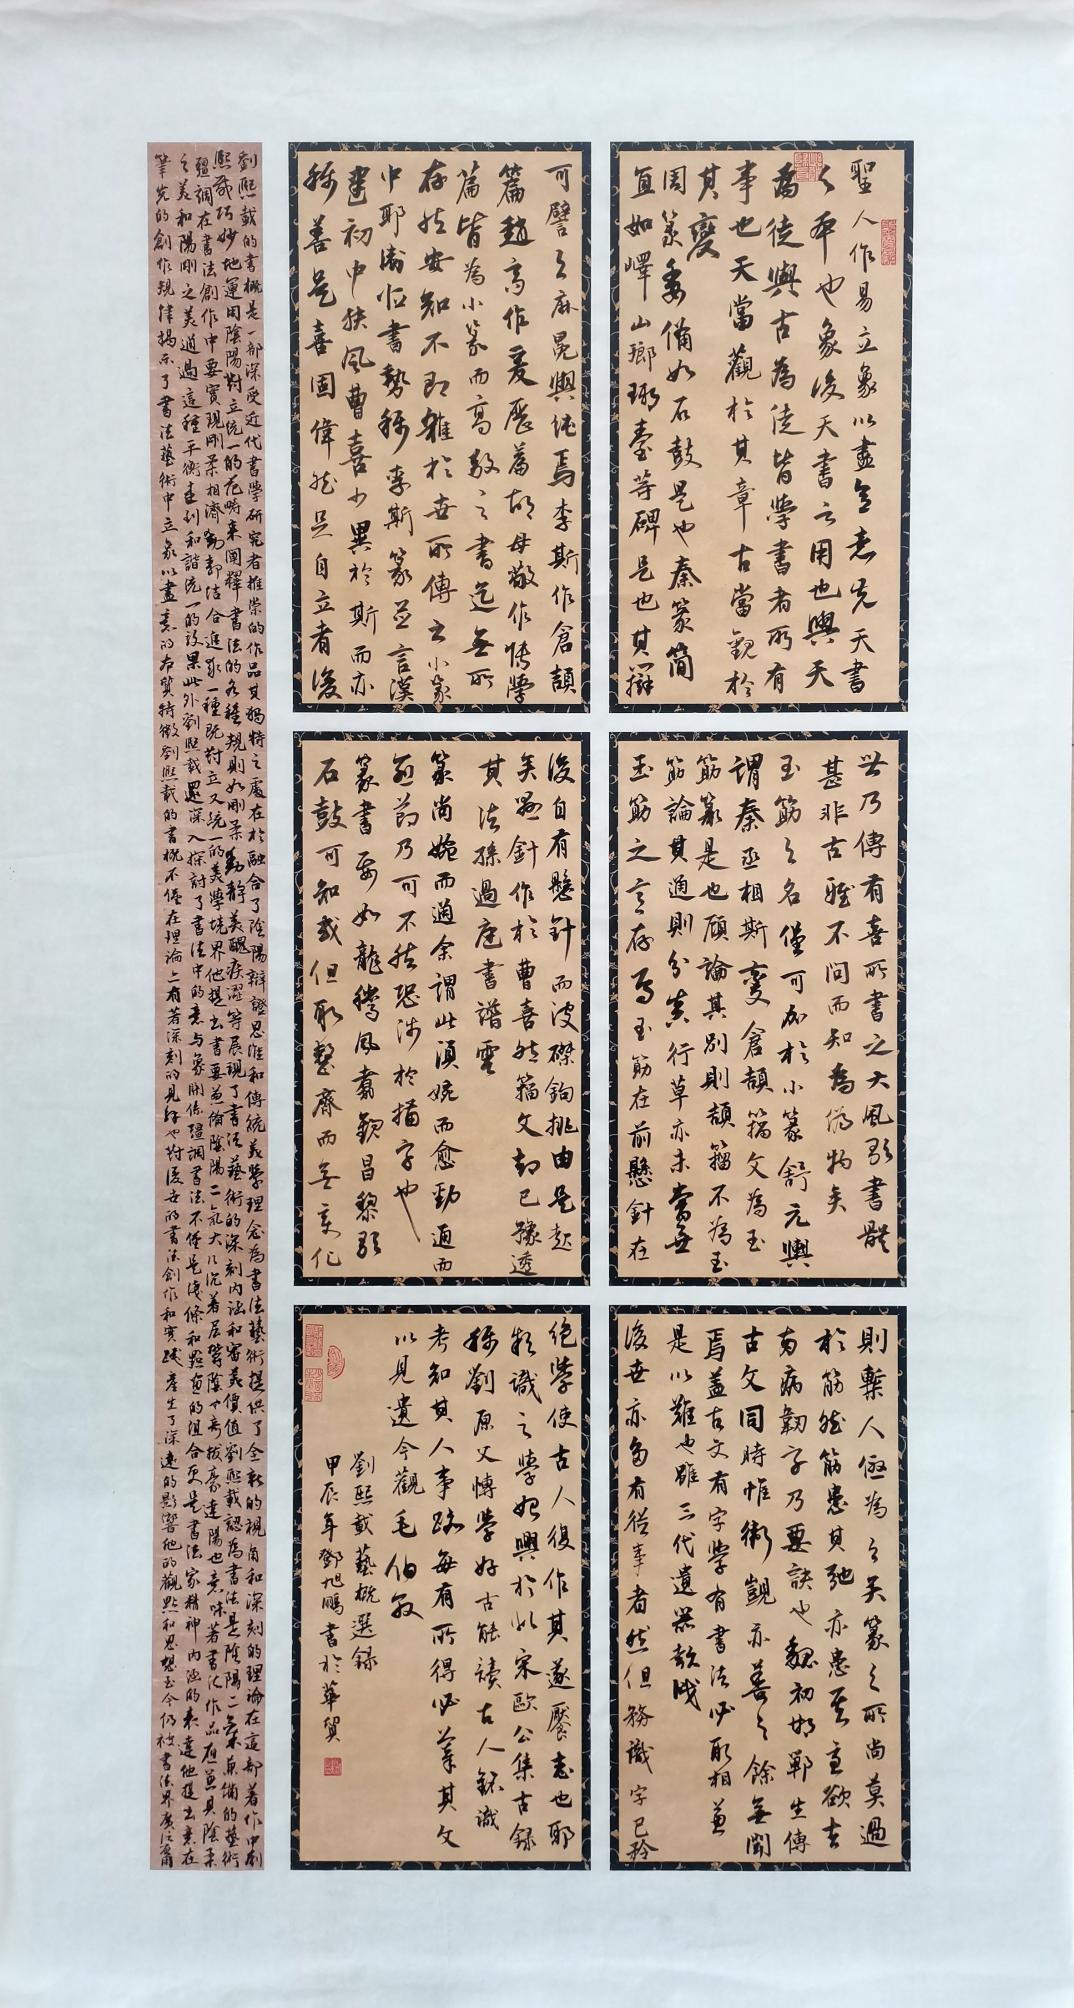 聖人作易立象以盡意意先天書
之本也象後天書之用也與天
為徒與古為徒皆學書者所有
事也天當觀於其章古當觀於
其變
周篆委備如石鼓是也秦篆簡
直如嶧山瑯琊臺等碑是也其辯
可譬之麻冕與純焉李斯作倉頡
篇趙高作爰歷篇胡母敬作博學
篇皆為小篆而高敬之書迄無所
存然安知不即雜於世所傳之小篆
中耶衛恒書勢稱李斯篆並言漢
建初中扶風曹喜少異於斯而亦
稱善是喜固偉然足自立者後
世乃傳有喜所書之大風歌書體
甚非古雅不問而知為偽物矣
玉筯之名僅可加於小篆舒元輿
謂秦丞相斯變倉頡籀文為玉
筯篆是也顧論其別則頡籀不為玉
筯論其通則分真行草亦未嘗無
玉筯之意存焉玉筯在前懸針在
後自有懸針而波磔鉤挑由是起
矣懸針作於曹喜然籀文卻已豫透
其法孫過庭書譜云
篆尚婉而通余謂此須婉而愈勁通而
愈節乃可不然恐涉於描字也
篆書要如龍騰鳳翥觀昌黎歌
石鼓可知或但取整齊而無變化
則槧人優為之矣篆之所尚莫過
於筋然筋患其弛亦患其急欲去
兩病韌字乃要訣也魏初邯鄲生傳
古文同時惟衛覬亦善之餘無聞
焉蓋古文有字學有書法必取相兼
是以難也雖三代遺器款識
後世亦多有從事者然但務識字已矜
絕學使古人復作其遂饜志也耶
款識之學始興於北宋歐公集古錄
稱劉原父博學好古能讀古人銘識
考知其人事跡每有所得必摹其文
以見遺今觀毛伯敦
劉熙載藝概選錄
甲辰年鄧旭鵬書於華貿
劉熙載的書概是一部深受近代書學研究者推崇的作品其獨特之處在於融合了陰陽辯證思維和傳統美學理念為書法藝術提供了全新的視角和深刻的理論在這部著作中劉
熙載巧妙地運用陰陽對立統一的范疇來闡釋書法的各種規則如剛柔動靜美醜疾澀等展現了書法藝術的深刻內涵和審美價值劉熙載認為書法是陰陽二氣兼備的藝術
強調在書法創作中要實現剛柔相濟動靜結合追求一種既對立又統一的美學境界他提出書要兼備陰陽二氣大凡沉著屈鬱陰也奇拔豪達陽也意味著書法作品應兼具陰柔
之美和陽剛之美通過這種平衡達到和諧統一的效果此外劉熙載還深入探討了書法中的意與象關係強調書法不僅是線條和點畫的組合更是書法家精神內涵的表達他提出意在
筆先的創作規律揭示了書法藝術中立象以盡意的本質特徵劉熙載的書概不僅在理論上有著深刻的見解也對後世的書法創作和實踐產生了深遠的影響他的觀點和思想至今仍被書法界廣泛